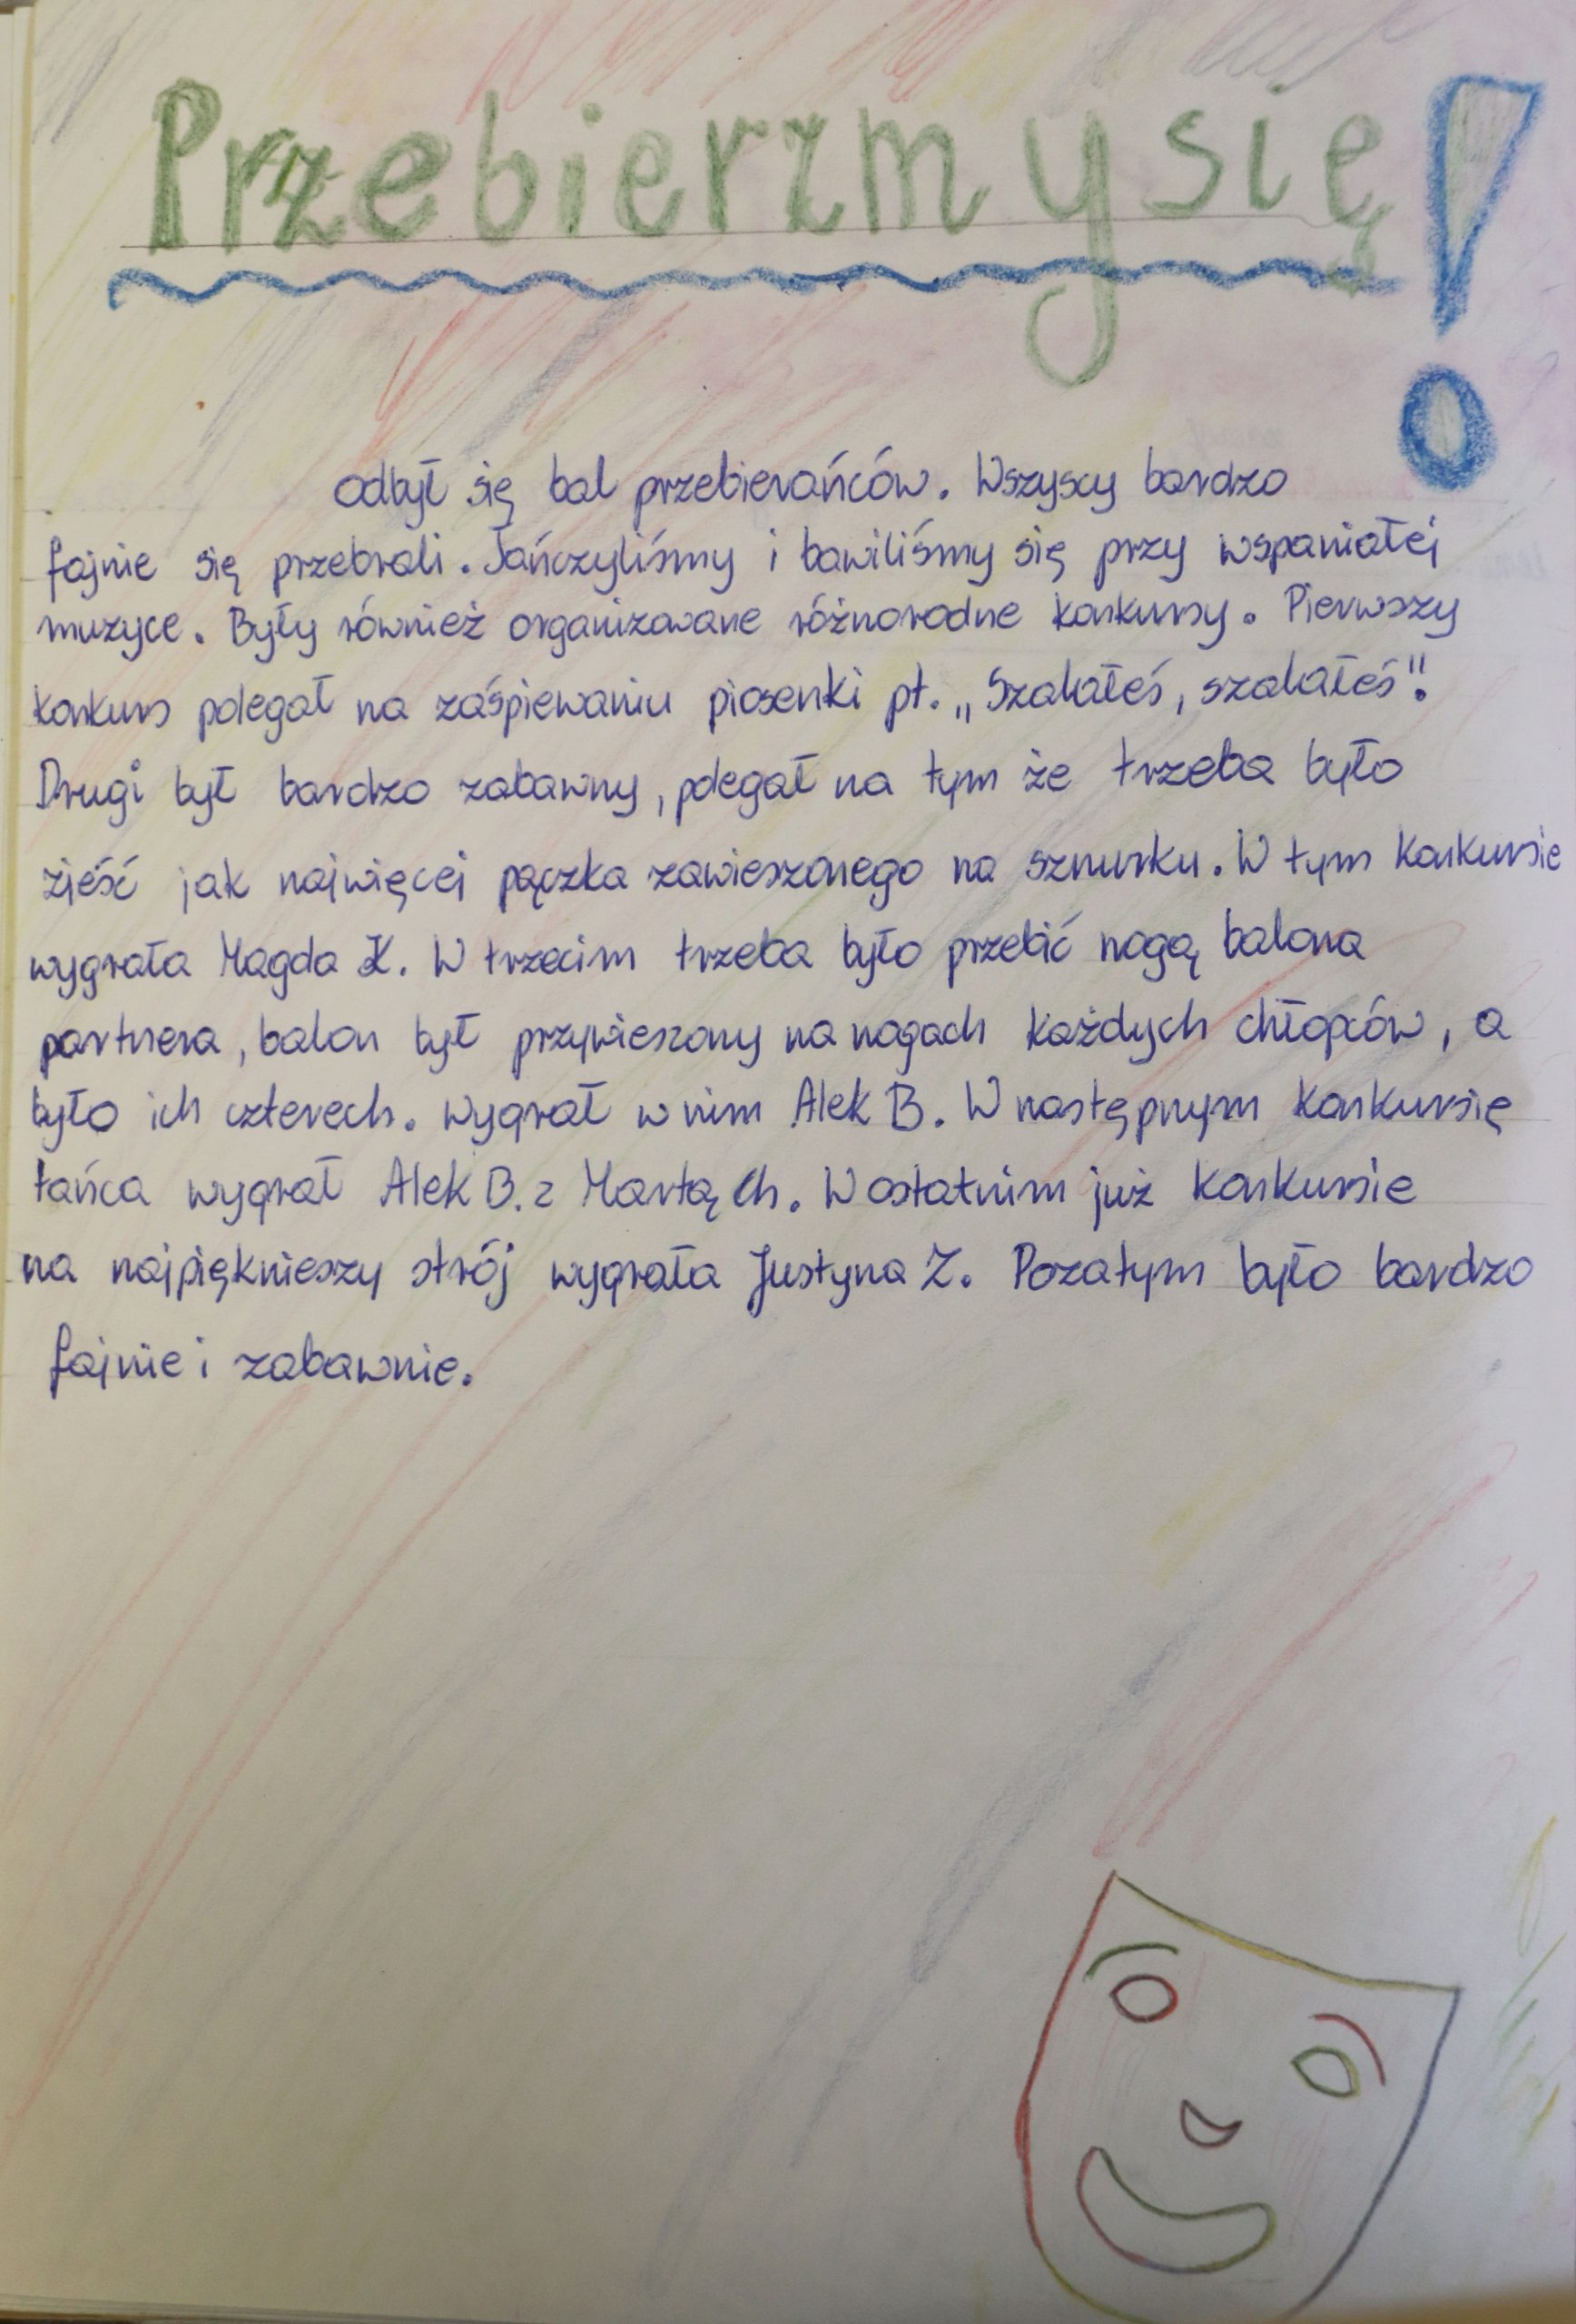 Przebierzmy się!
odbył się bal przebierańców. Wszyscy bardzo
fajnie się przebrali. Tańczyliśmy i bawiliśmy się przy wspaniałej
muzyce. Były również organizowane różnorodne konkursy. Pierwszy
konkurs polegał na zaśpiewaniu piosenki pt. „Szalałeś, szalałeś".
Drugi był bardzo zabawny, polegał na tym że trzeba było
zjeść jak najwięcej pączka zawieszonego na sznurku. W tym konkursie
wygrała Magda K. W trzecim trzeba było przebić nogą balona
partnera, balon był przywieszony na nogach każdych chłopców, a
było ich czterech. wygrał w nim Alek B. W następnym konkursię
tańca wygrał Alek B. z Martą Ch. W ostatnim już konkursie
na najpięknieszy strój wygrała Justyna Z. Pozatym było bardzo
fajnie i zabawnie.